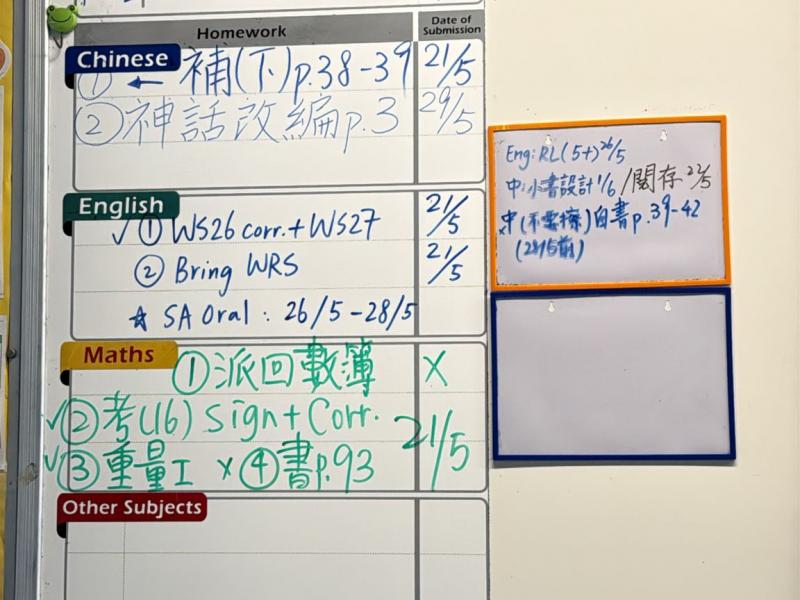 Homework
Date of Submission
Chinese
① ← 補(下)p.38-39 21/5
② 神話改編p.3 29/5
English
✓ ① WS26 corr.+WS27 21/5
② Bring WRS 21/5
☆ SA Oral : 26/5-28/5
Maths
① 派回數簿 X
✓② 考(16) Sign+Corr. 21/5
✓③ 重量I x ④ 書p.93
Other Subjects
Eng: RL(5+) 26/5
中:小書設計 1/6 /閱存 22/5
中(不要擦)白書p.39-42
(28/5前)